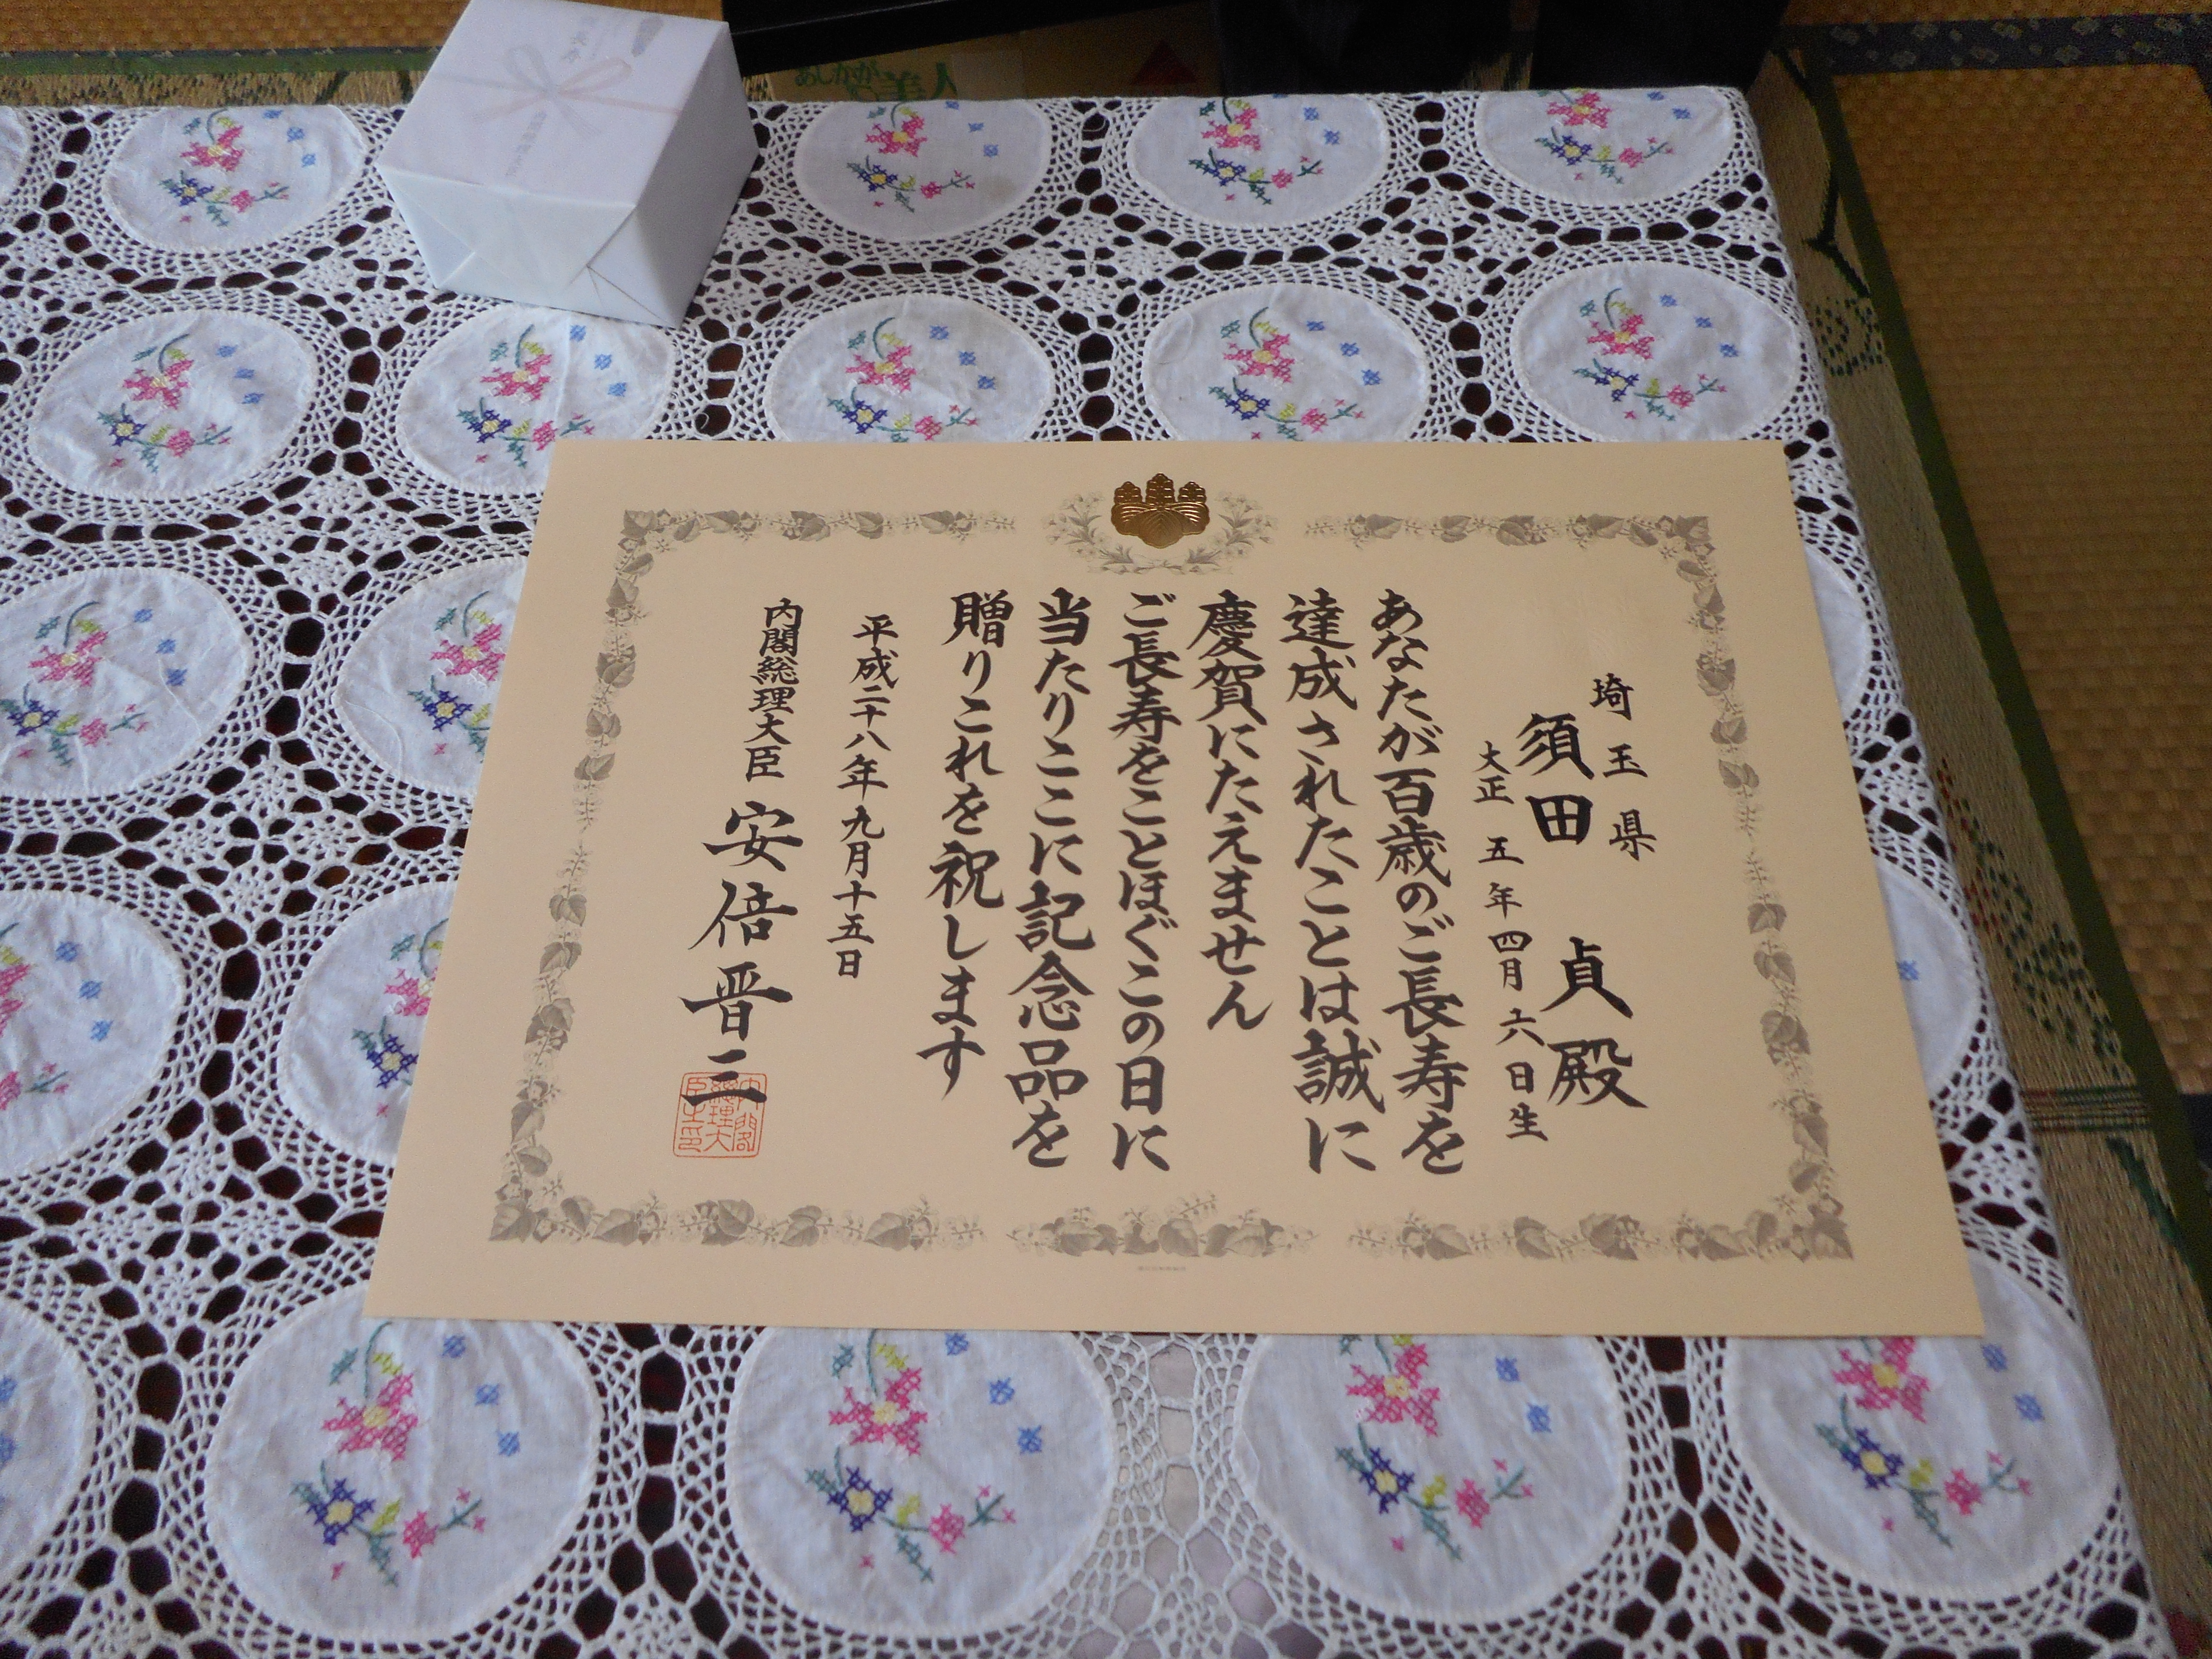 埼玉県
須田 貞殿
大正 五年四月六日生
あなたが百歳のご長寿を
達成されたことは誠に
慶賀にたえません
ご長寿をことほぐこの日に
当たりここに記念品を
贈りこれを祝します
平成二十八年九月十五日
内閣総理大臣 安倍晋三
内閣總理大臣之印
あしかが
美人